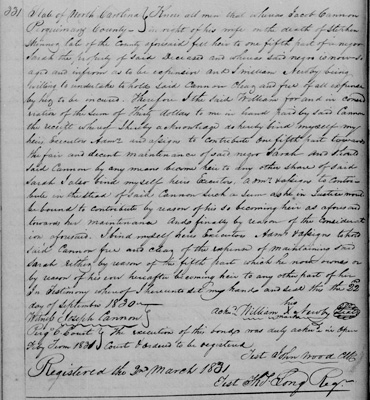 331 State of North Carolina } Know all men that whereas Jacob Cannon
Perquimans County } in right of his wife on the death of Stephen
Skinner late of the County aforesaid fell heir to one fifth part of a negro
Sarah the property of said Deceased and whereas said negro is now so
aged and infirm as to be expensive and I William Newby being
willing to undertake to hold said Cannon Clear and free of all expense
by her to be incured. Therefore I the said William for and in consid
eration of the Sum of thirty dollars to me in hand paid by said Cannon
the receipt whereof I hereby acknowledge do hereby bind myself my
heirs Executors Admrs. and assigns to Contribute on fifth part towards
the fair and decent maintainance of said negro Sarah and should
said Cannon by any means become heir to any other share of said
Sarah I also bind myself heirs Executors, admrs. assigns to Contri
bute in the Stead of said Cannon such sum as he in Justice would
be bound to Contribute by reason of his so becoming heir as aforesaid
towards her maintainance And finally by reason of the Considerat
ion aforesaid I bind myself heirs Executors Admrs. & assigns to hold
said Cannon free and clear of the expense of maintaining said
Sarah either by reason of the fifth part which he now owns or
by reason of his ever hereafter becoming heir to any other part of her
In testimony whereof I hereunto set my hand and seal this the 22
day of September 1830 his
Witness Joseph Cannon ackd. William X Newby (Seal)
Perqs. County } The execution of this bond was duly ackd. in Open
Feby Term 1831 } Court & ordered to be registered
Test John Wood Clk
Registered the 2nd March 1831
Test Long Regr.